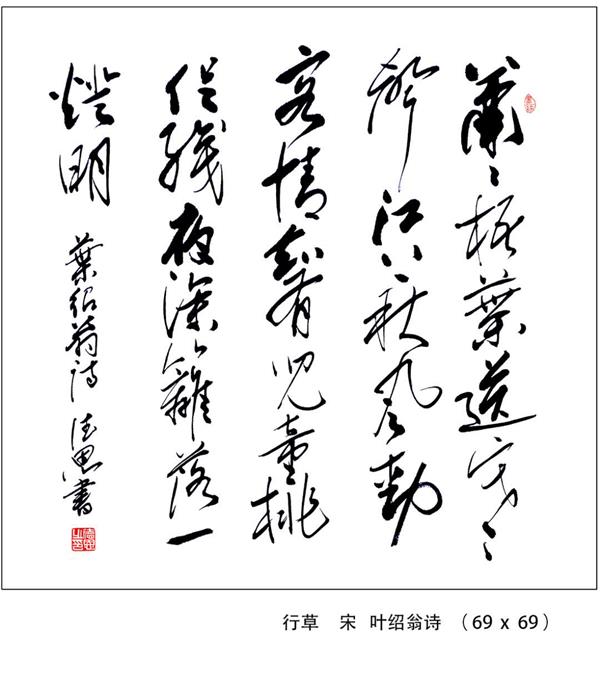 蕭〻梧葉送寒
聲江上秋風動
客情知有兒童挑
促織夜深籬落一
燈明
葉紹翁詩 思書
行草 宋 叶绍翁诗 （69 x 69）